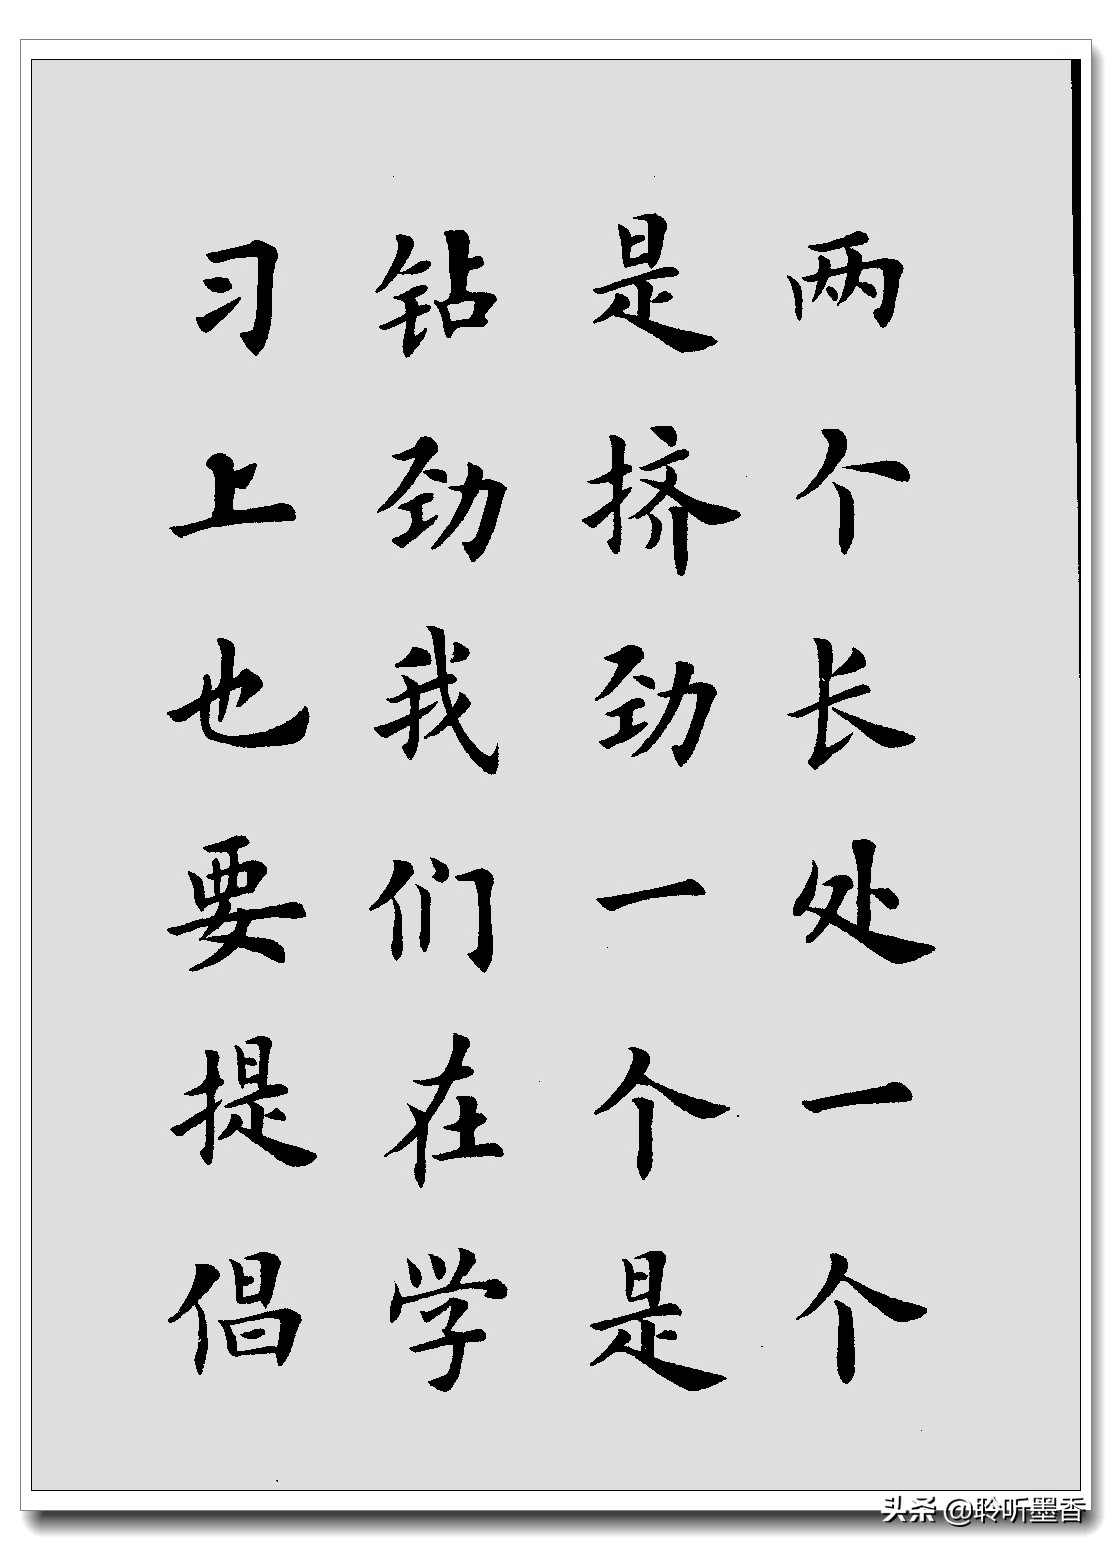 两个长处一个
是挤劲一个是
钻劲我们在学
习上也要提倡
头条 @聆听墨香